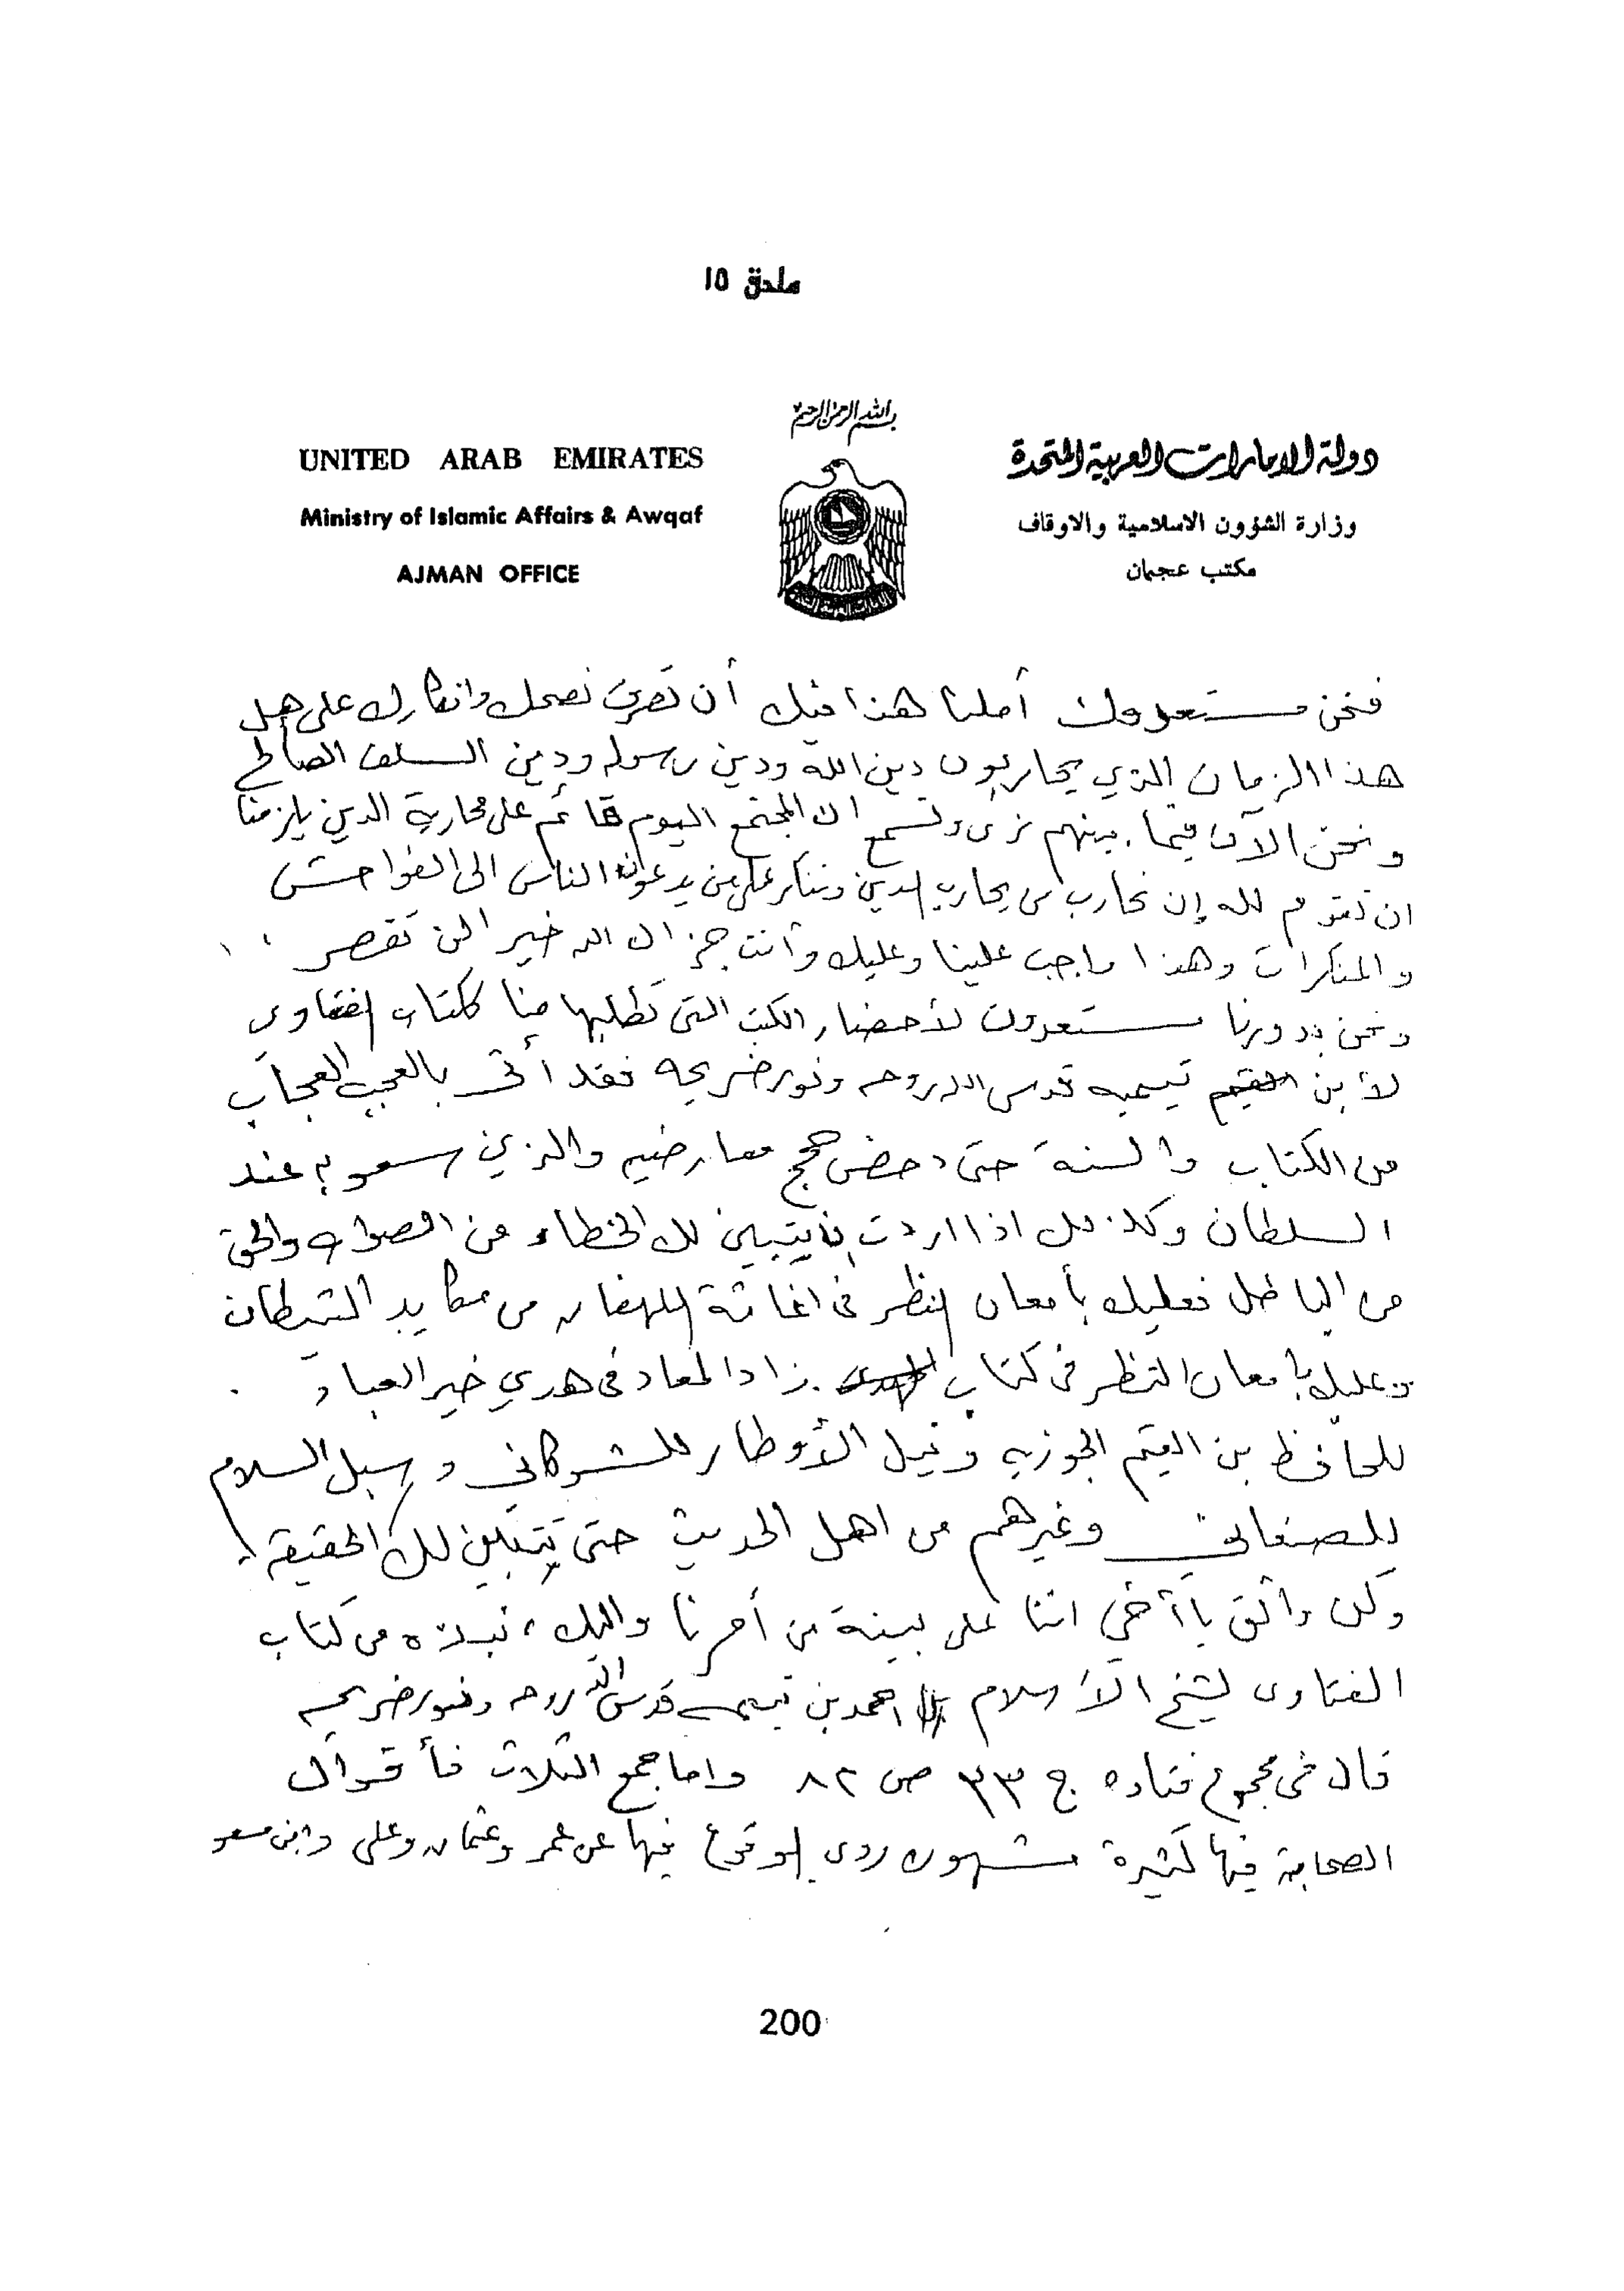 ملحق ١٥
بسم الله الرحمن الرحيم
UNITED ARAB EMIRATES
دولة الامارات العربية المتحدة
Ministry of Islamic Affairs & Awqaf
وزارة الشؤون الاسلامية والاوقاف
AJMAN OFFICE
مكتب عجمان
فنحن مستعدون أملنا هذا فيك أن تصرف نصحك وانكارك على هل
هذا الزمان الذي يحاربون دين الله ودين رسوله ودين السلف الصالح
ونحن الآن فيما بينهم نرى ونسمع ان المجتمع اليوم قائم على محاربة الدين يلزمنا
ان نقوم لله إن نحارب من يحارب الدين وننكر على من يدعون الناس الى الفواحش
والمنكرات وهذا واجب علينا وعليك وأنت جزاك الله خير الن تقصر
ونحن بدورنا مستعدون لأحضار الكتب التى تطلبها منا ككتاب الفتاوى
لأبن تيميه قدس الله روحه ونور ضريحه فقد أتى بالعجب العجاب
من الكتاب والسنة حتى دحض حجج معارضيه والذين سعو به عند
السلطان وكذلك اذا اردت ان يتبين لك الخطاء من الصواب والحق
من الباطل فعليك بأمعان النظر فى اغاثة اللهفان من مكايد الشيطان
وعليك بامعان النظر فى كتاب زاد المعاد فى هدي خير العباد
للحافظ بن القيم الجوزيه ونيل الأوطار للشوكانى وسبل السلام
للصنعانى وغيرهم من اهل الحديث حتى يتبين لك الحقيقة
وكن واثق يا أخي اننا على بينة من أمرنا واليك نبذه من كتاب
الفتاوى لشيخ الأسلام احمد بن تيميه قدس الله روحه ونور ضريحه
قال فى مجموع فتاوه ج ٣٣ ص ٨٢ واما جمع الثلاث فأقوال
الصحابة فيها كثيرة مشهوره روى الوقوع فيها عن عمر وعثمان وعلى وابن مسعو
200